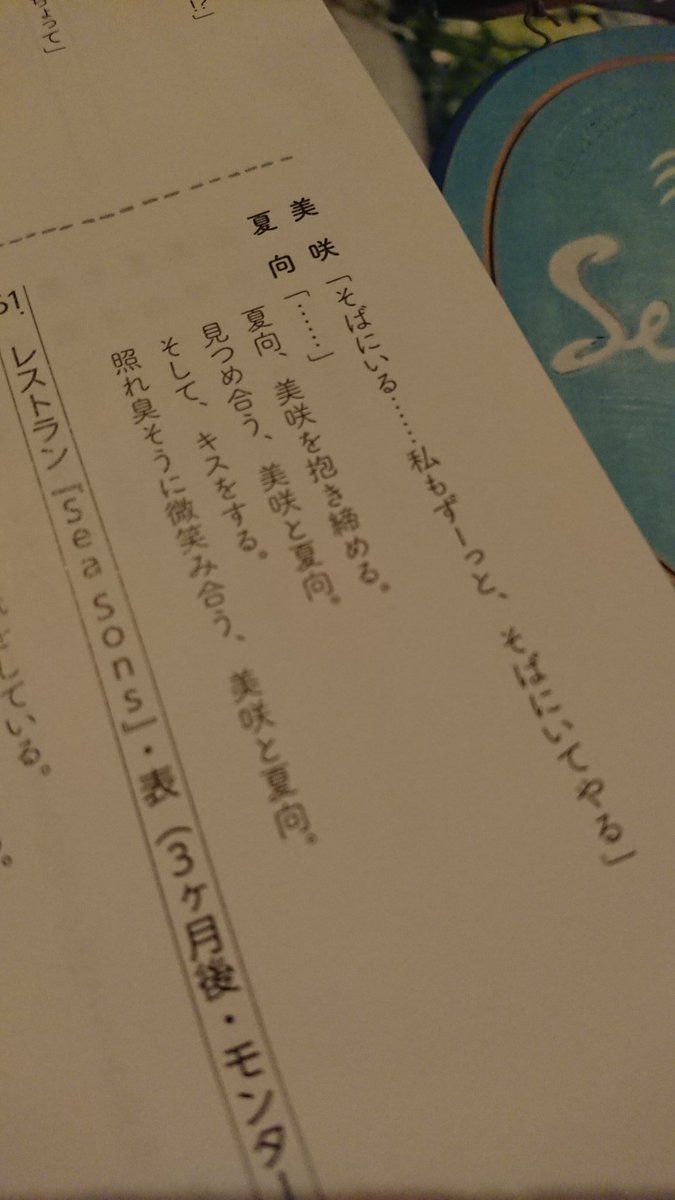 !?」
ちょって」
美咲「そばにいる……私もずーっと、そばにいてやる」
夏向「……」
夏向、美咲を抱き締める。
見つめ合う、美咲と夏向。
そして、キスをする。
照れ臭そうに微笑み合う、美咲と夏向。
61. レストラン『Sea sons』・表(3ヶ月後・モンター
している。
Se